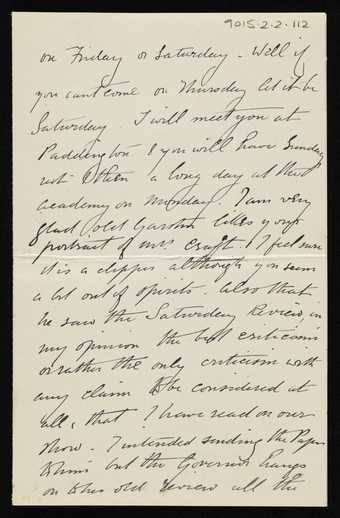 9015-2-2-112
on Friday or Saturday - Well if
you cant come on Thursday let it be
Saturday. I will meet you at
Paddington & you will have Sunday
rest & then a long day at the
academy on Monday. I am very
glad old Garstin likes your
portrait of Mrs Craft. I feel sure
it is a clipper although you seem
a bit out of spirits. Also that
he saw the Saturday Review, in
my opinion the best criticism
or rather the only criticism with
any claim to be considered at
all, that I have read on our
show. I intended sending the Paper
to him but the Governor hangs
on to his old review all the